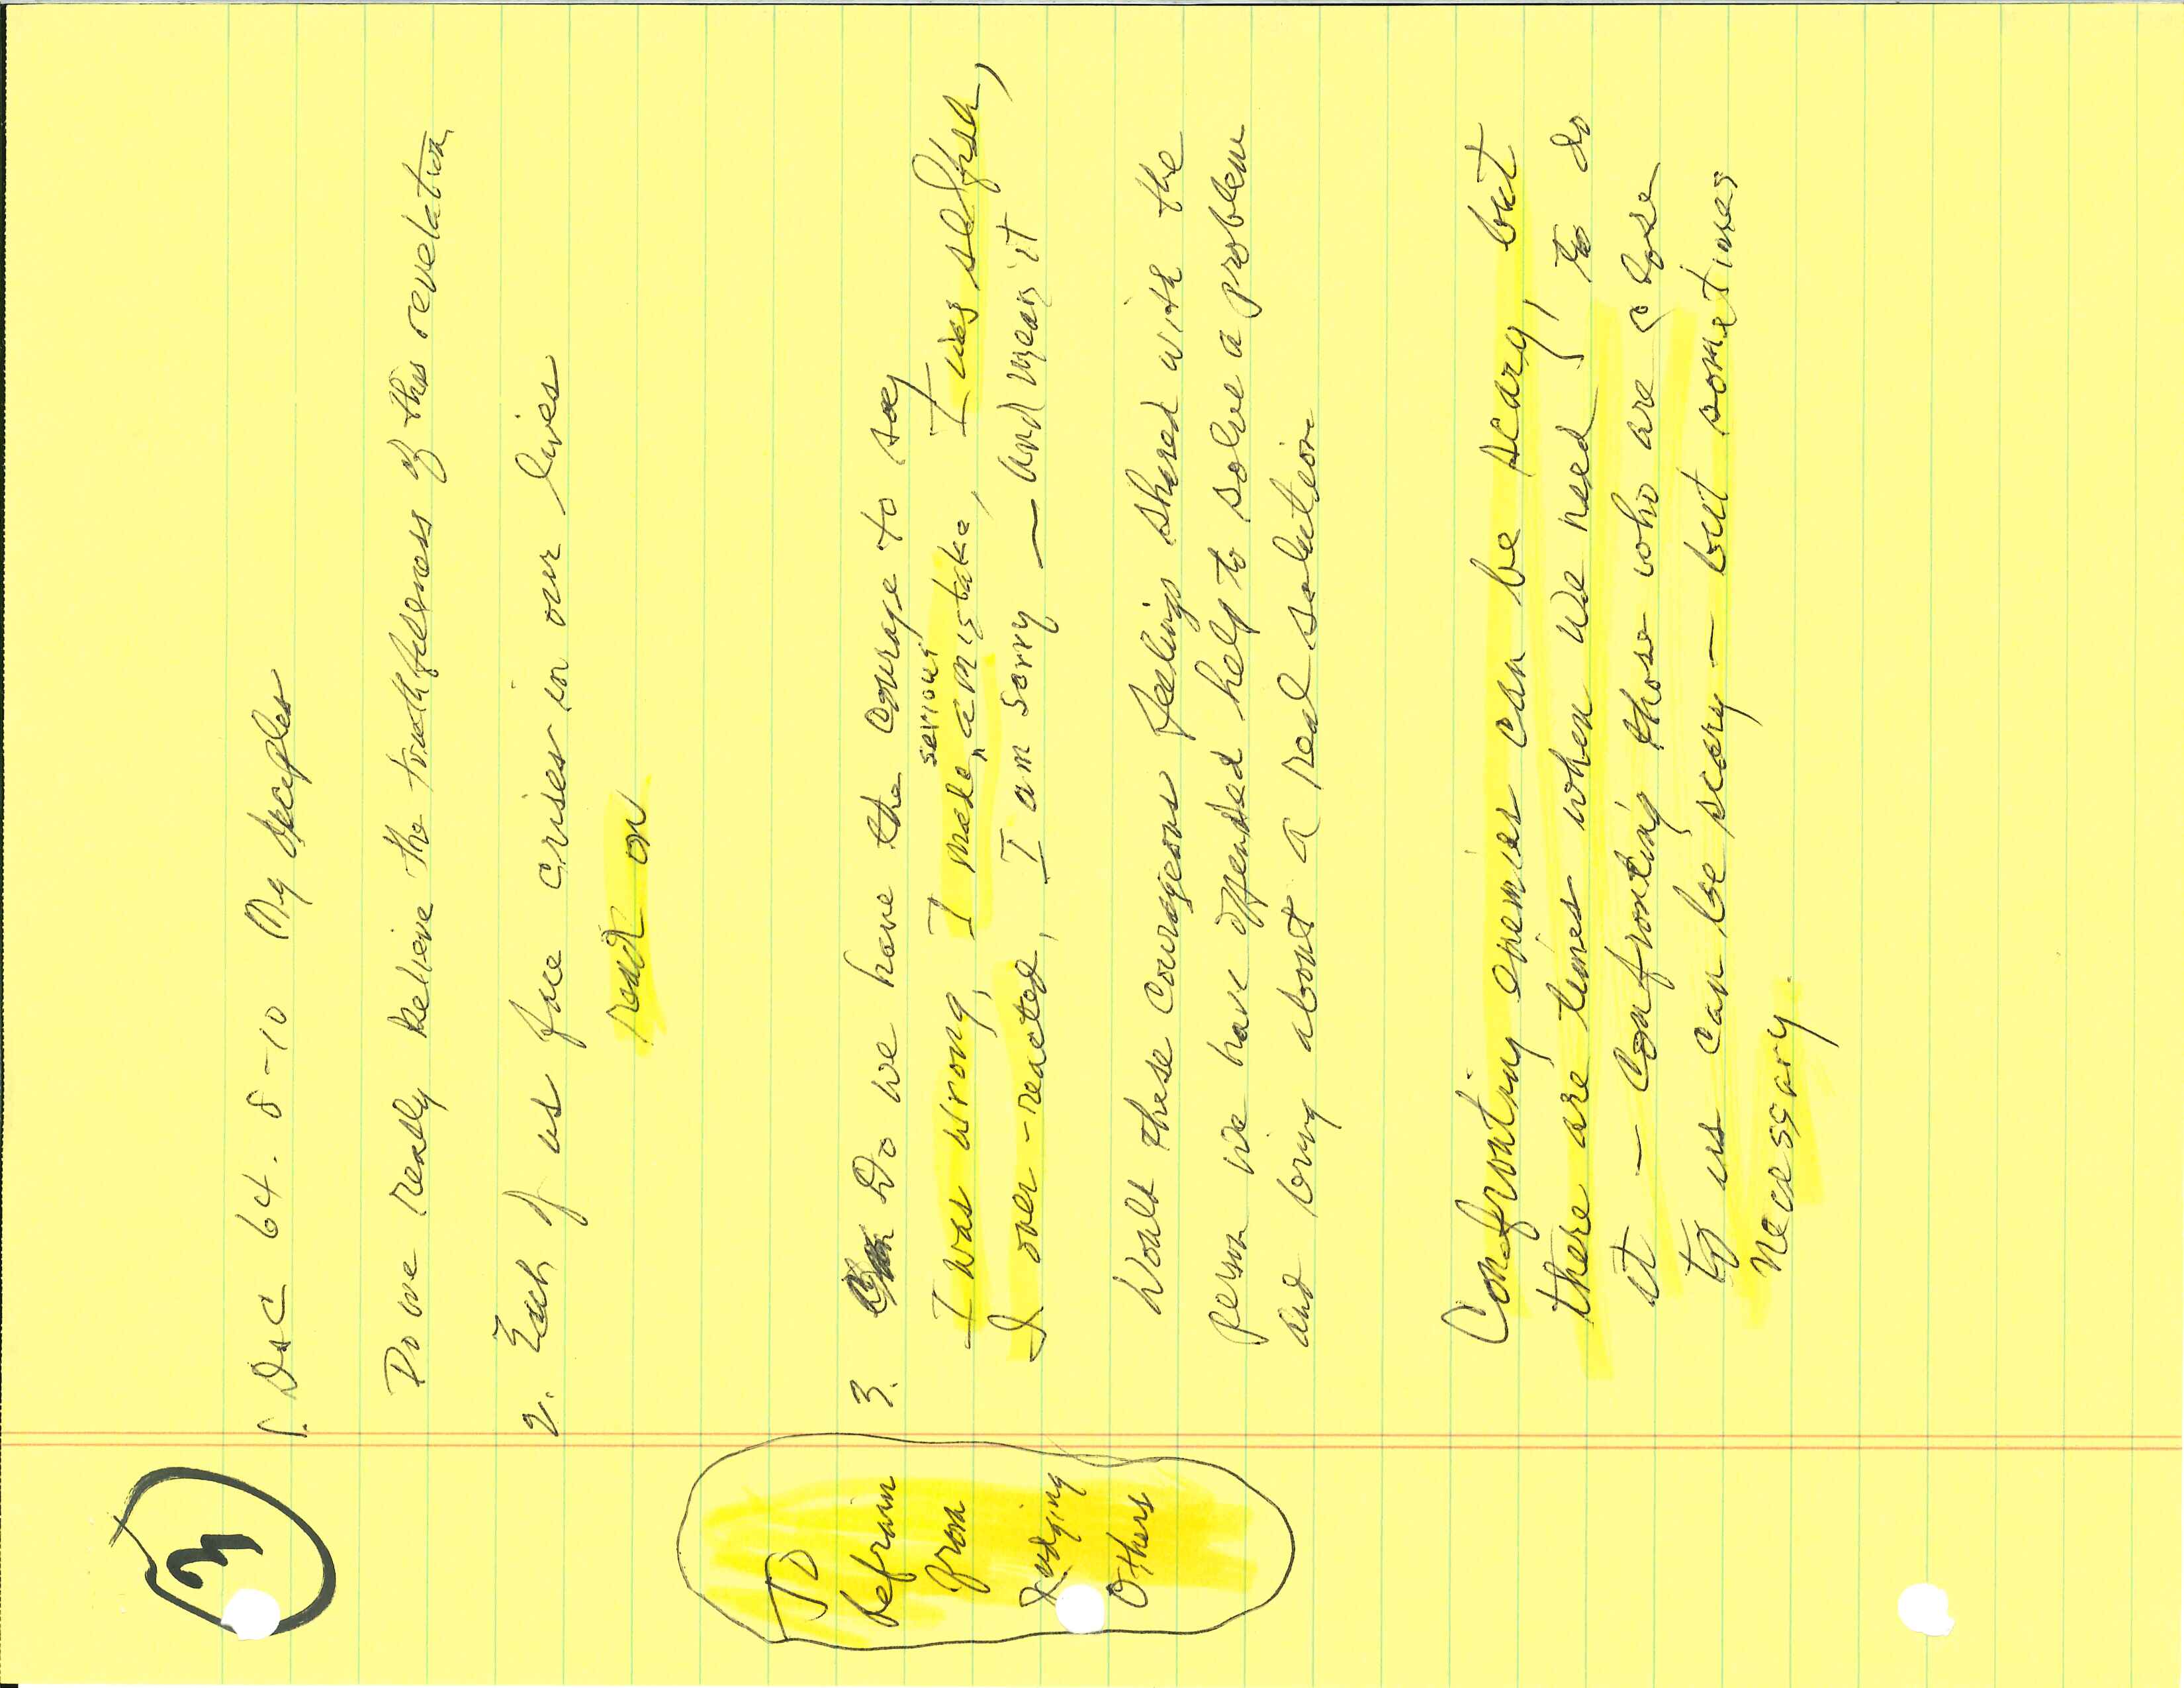 3
1. D&C 64. 8-10 My disciples
Do we really believe the truthfulness of this revelation
2. Each of us face crises in our lives
read on
3. Do we have the courage to say
serious
I was wrong, I made a mistake, I was selfish,
I over-reacted, I am sorry — and mean it
Would these courageous feelings shared with the
person we have offended help to solve a problem
and bring about a real solution
Confronting enemies can be scary, but
there are times when we need to do
it — Confronting those who are close
to us can be scary — but sometimes
necessary.
JD
Refrain
from
Judging
Others